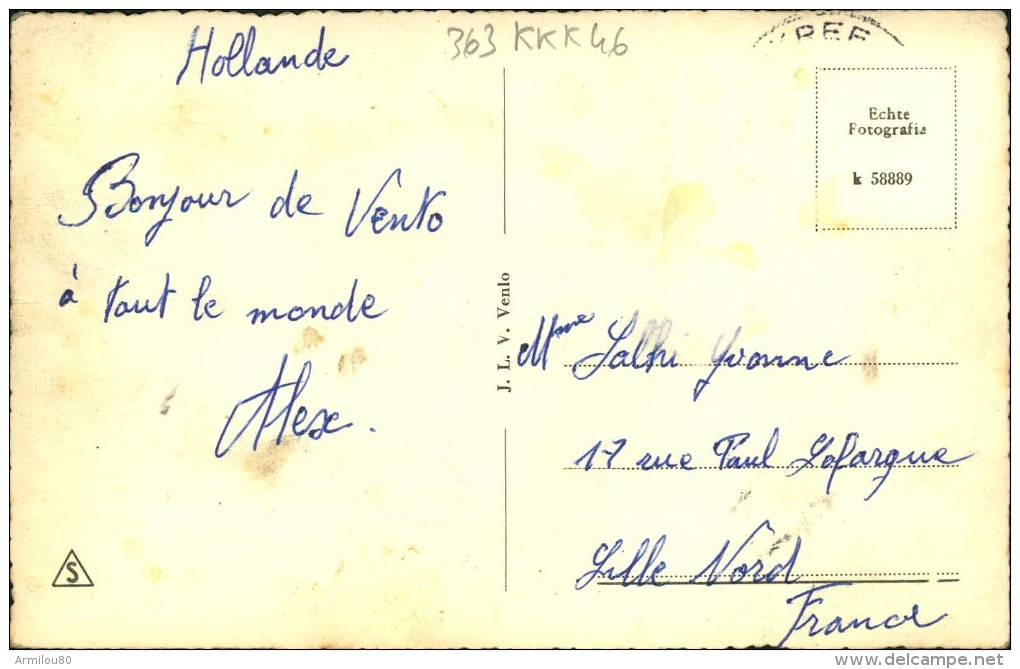 Hollande
363 KKK 46
REF
Echte
Fotografie
k 58889
Bonjour de Venlo
à tout le monde
Alex.
J. L. V. Venlo
Mme Salhi Yvonne
17 rue Paul Lafargue
Lille Nord
France
S
Armilou80
www.delcampe.net